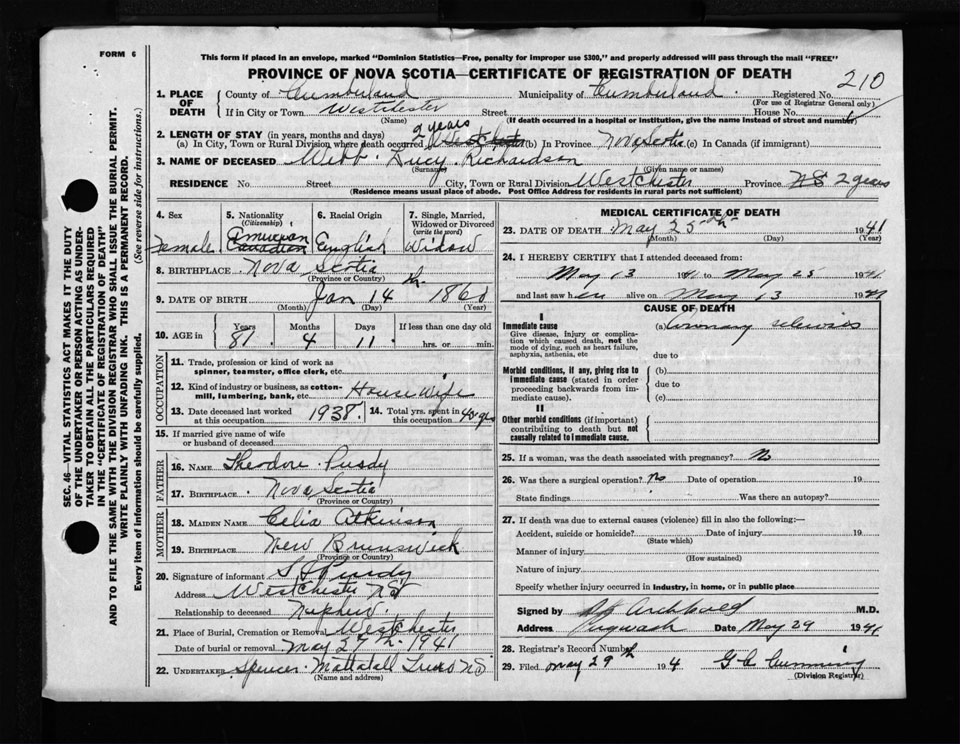 FORM 6
This form if placed in an envelope, marked "Dominion Statistics—Free, penalty for improper use $300," and properly addressed will pass through the mail "FREE"
PROVINCE OF NOVA SCOTIA—CERTIFICATE OF REGISTRATION OF DEATH
210
1. PLACE OF DEATH County of Cumberland Municipality of Cumberland Registered No.
(For use of Registrar General only)
If in City or Town Westchester Street House No.
(Name) (If death occurred in a hospital or institution, give the name instead of street and number)
2. LENGTH OF STAY (in years, months and days) 2 years
(a) In City, Town or Rural Division where death occurred Westchester (b) In Province Nova Scotia (c) In Canada (if immigrant)
3. NAME OF DECEASED Webb Lucy Richardson
(Surname) (Given name or names)
RESIDENCE No. Street City, Town or Rural Division Westchester Province NS 2 years
(Residence means usual place of abode. Post Office Address for residents in rural parts not sufficient)
4. Sex Female
5. Nationality (Citizenship) American Canadian
6. Racial Origin English
7. Single, Married, Widowed or Divorced (write the word) Widow
8. BIRTHPLACE Nova Scotia
(Province or Country)
9. DATE OF BIRTH Jan 14th 1860
(Month) (Day) (Year)
10. AGE in Years 81 Months 4 Days 11 If less than one day old hrs. or min.
OCCUPATION
11. Trade, profession or kind of work as spinner, teamster, office clerk, etc.
12. Kind of industry or business, as cotton-mill, lumbering, bank, etc. House Wife
13. Date deceased last worked at this occupation 1938 14. Total yrs. spent in this occupation 40 yrs
15. If married give name of wife or husband of deceased
FATHER
16. NAME Theodore Purdy
17. BIRTHPLACE Nova Scotia
(Province or Country)
MOTHER
18. MAIDEN NAME Celia Atkinson
19. BIRTHPLACE New Brunswick
(Province or Country)
20. Signature of informant Purdy
Address Westchester NS
Relationship to deceased Nephew
21. Place of Burial, Cremation or Removal Westchester
Date of burial or removal May 27th 1941
22. UNDERTAKER Spencer Mattatall Truro NS
(Name and address)
MEDICAL CERTIFICATE OF DEATH
23. DATE OF DEATH May 25th 1941
(Month) (Day) (Year)
24. I HEREBY CERTIFY that I attended deceased from:
May 13 1941 to May 25 1941
and last saw her alive on May 13 1941
CAUSE OF DEATH
I
Immediate cause
Give disease, injury or complication which caused death, not the mode of dying, such as heart failure, asphyxia, asthenia, etc
(a) Coronary sclerosis
due to
Morbid conditions, if any, giving rise to immediate cause (stated in order proceeding backwards from immediate cause).
(b)
due to
(c)
II
Other morbid conditions (if important) contributing to death but not causally related to immediate cause.
25. If a woman, was the death associated with pregnancy? No
26. Was there a surgical operation? No Date of operation 19
State findings Was there an autopsy?
27. If death was due to external causes (violence) fill in also the following:—
Accident, suicide or homicide? Date of injury 19
(State which)
Manner of injury
(How sustained)
Nature of injury
Specify whether injury occurred in industry, in home, or in public place
Signed by Archbald M.D.
Address Pugwash Date May 29 1941
28. Registrar's Record Number
29. Filed May 29th 194 G C Cumming
(Division Registrar)
SEC. 46—VITAL STATISTICS ACT MAKES IT THE DUTY
OF THE UNDERTAKER OR PERSON ACTING AS UNDER-
TAKER TO OBTAIN ALL THE PARTICULARS REQUIRED
IN THE "CERTIFICATE OF REGISTRATION OF DEATH"
AND TO FILE THE SAME WITH THE DIVISION REGISTRAR WHO SHALL ISSUE THE BURIAL PERMIT.
WRITE PLAINLY WITH UNFADING INK. THIS IS A PERMANENT RECORD.
Every item of information should be carefully supplied. (See reverse side for instructions.)